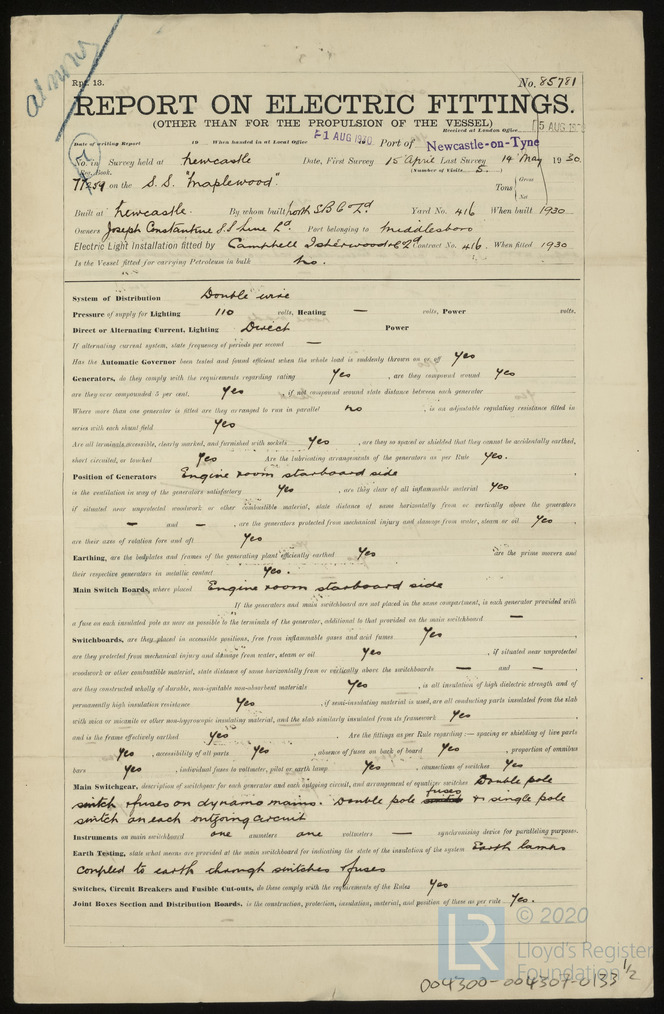 Rpt. 13.
No. 85781
REPORT ON ELECTRIC FITTINGS.
(OTHER THAN FOR THE PROPULSION OF THE VESSEL)
Received at London Office 5 AUG 193
Date of writing Report 19 When handed in at Local Office -1 AUG 1930 Port of Newcastle-on-Tyne
No. in Survey held at Newcastle Date, First Survey 15 April Last Survey 14 May 1930
Reg. Book. (Number of Visits 5.)
77559 on the S.S. "Maplewood". Tons Gross Net
Built at Newcastle. By whom built North S.B. Co Ld. Yard No. 416 When built 1930
Owners Joseph Constantine S.S. Line Ld. Port belonging to Middlesboro
Electric Light Installation fitted by Campbell Isherwood & Co Ld Contract No. 416. When fitted 1930
Is the Vessel fitted for carrying Petroleum in bulk No.
System of Distribution Double wire
Pressure of supply for Lighting 110 volts, Heating — volts, Power volts.
Direct or Alternating Current, Lighting Direct Power
If alternating current system, state frequency of periods per second —
Has the Automatic Governor been tested and found efficient when the whole load is suddenly thrown on or off Yes
Generators, do they comply with the requirements regarding rating Yes, are they compound wound Yes
are they over compounded 5 per cent. Yes, if not compound wound state distance between each generator
Where more than one generator is fitted are they arranged to run in parallel No, is an adjustable regulating resistance fitted in
series with each shunt field Yes
Are all terminals accessible, clearly marked, and furnished with sockets Yes, are they so spaced or shielded that they cannot be accidentally earthed,
short circuited, or touched Yes Are the lubricating arrangements of the generators as per Rule Yes.
Position of Generators Engine room starboard side
is the ventilation in way of the generators satisfactory Yes, are they clear of all inflammable material Yes
if situated near unprotected woodwork or other combustible material, state distance of same horizontally from or vertically above the generators
— and —, are the generators protected from mechanical injury and damage from water, steam or oil Yes,
are their axes of rotation fore and aft Yes
Earthing, are the bedplates and frames of the generating plant efficiently earthed Yes are the prime movers and
their respective generators in metallic contact Yes.
Main Switch Boards, where placed Engine room starboard side
If the generators and main switchboard are not placed in the same compartment, is each generator provided with
a fuse on each insulated pole as near as possible to the terminals of the generator, additional to that provided on the main switchboard —
Switchboards, are they placed in accessible positions, free from inflammable gases and acid fumes Yes
are they protected from mechanical injury and damage from water, steam or oil Yes, if situated near unprotected
woodwork or other combustible material, state distance of same horizontally from or vertically above the switchboards — and —,
are they constructed wholly of durable, non-ignitable non-absorbent materials Yes, is all insulation of high dielectric strength and of
permanently high insulation resistance Yes, if semi-insulating material is used, are all conducting parts insulated from the slab
with mica or micanite or other non-hygroscopic insulating material, and the slab similarly insulated from its framework Yes
and is the frame effectively earthed Yes Are the fittings as per Rule regarding:— spacing or shielding of live parts
Yes, accessibility of all parts Yes, absence of fuses on back of board Yes, proportion of omnibus
bars Yes, individual fuses to voltmeter, pilot or earth lamp Yes, connections of switches Yes
Main Switchgear, description of switchgear for each generator and each outgoing circuit, and arrangement of equalizer switches Double pole
switch & fuses on dynamo mains. Double pole fuses & single pole
switch on each outgoing circuit
Instruments on main switchboard one ammeters one voltmeters — synchronising device for paralleling purposes.
Earth Testing, state what means are provided at the main switchboard for indicating the state of the insulation of the system Earth lamps
coupled to earth through switches & fuses
Switches, Circuit Breakers and Fusible Cut-outs, do these comply with the requirements of the Rules Yes
Joint Boxes Section and Distribution Boards, is the construction, protection, insulation, material, and position of these as per rule Yes.
LR
© 2020
Lloyd's Register
Foundation
004300-004307-0133 1/2